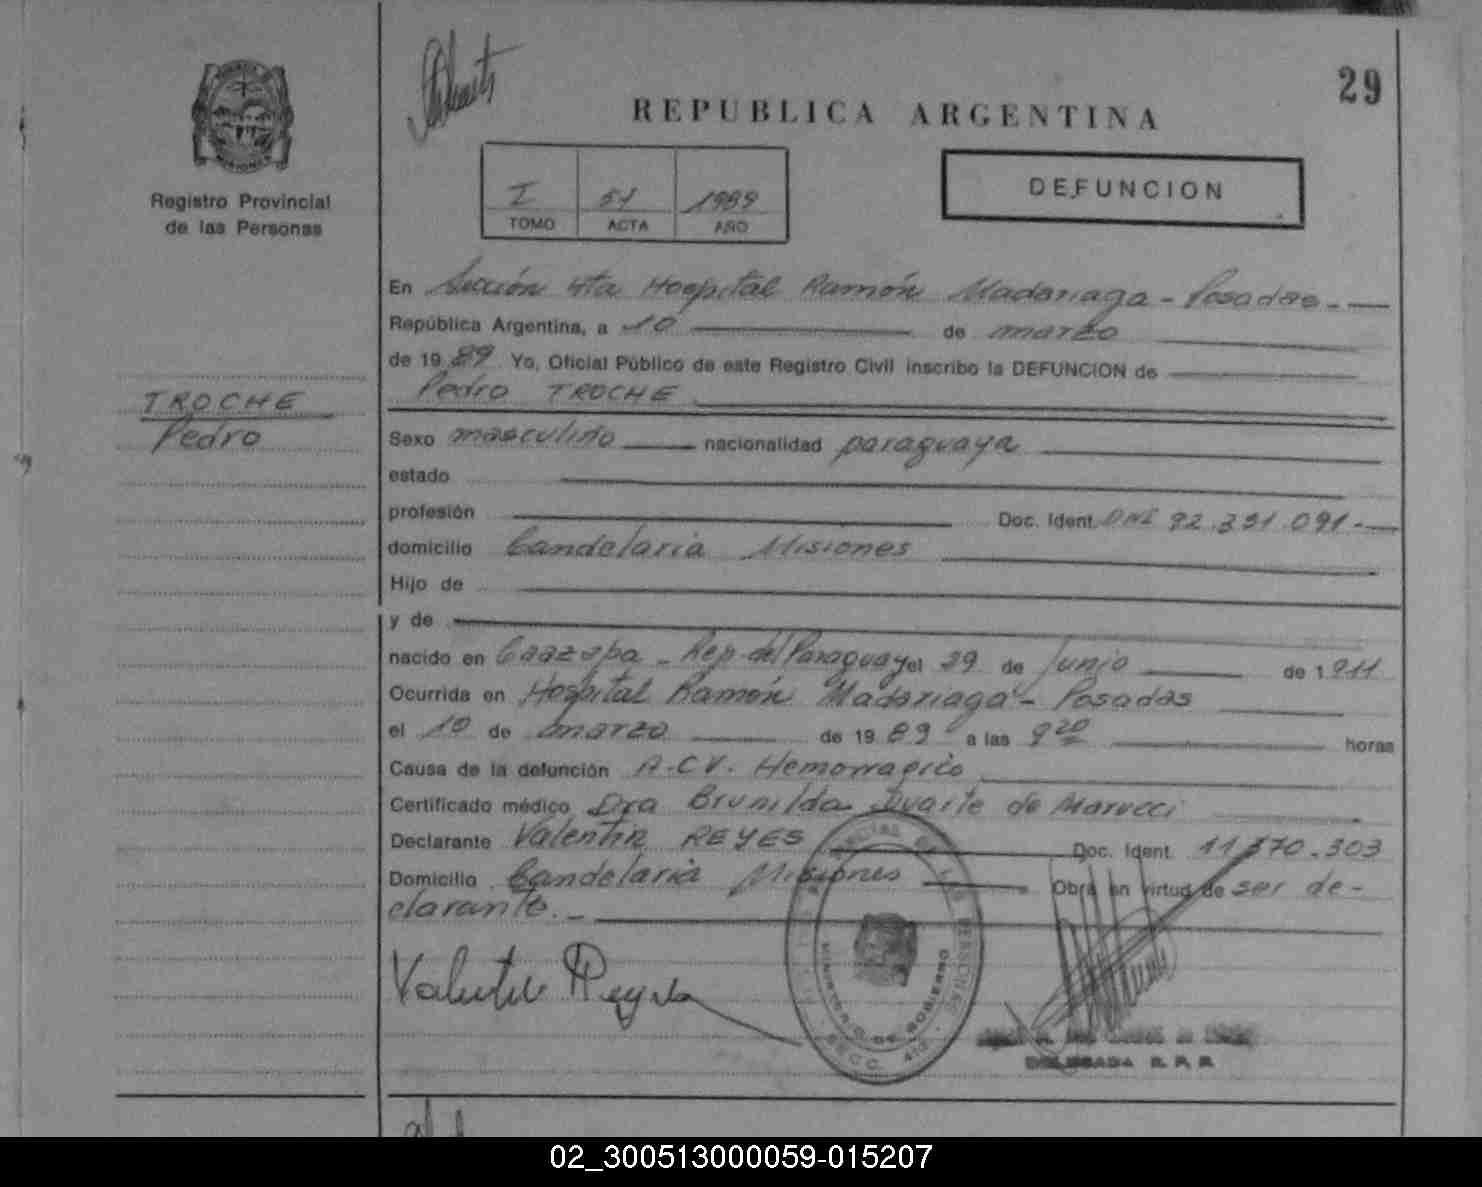 29
REPUBLICA ARGENTINA
Registro Provincial
de las Personas
I 51 1989
TOMO ACTA AÑO
DEFUNCION
En Sección 4ta Hospital Ramón Madariaga - Posadas -
República Argentina, a 10 de marzo
de 1989 Yo, Oficial Público de este Registro Civil inscribo la DEFUNCION de
Pedro TROCHE
TROCHE
Pedro
Sexo masculino nacionalidad paraguaya
estado
profesión Doc. Ident. DNI 92.351.091.-
domicilio Candelaria Misiones
Hijo de
y de
nacido en Caazapa - Rep. del Paraguay el 29 de Junio de 1911
Ocurrida en Hospital Ramón Madariaga - Posadas
el 10 de marzo de 1989 a las 9 20 horas
Causa de la defunción A.C.V. Hemorragico
Certificado médico Dra Brunilda Duarte de Marucci
Declarante Valentin REYES Doc. Ident. 11.370.303
Domicilio Candelaria Misiones Obra en virtud de ser de-
clarante.-
Valentin Reyes
MINISTERIO DE GOBIERNO
SECC. 4ta
DELEGADA R. P. P.
02_300513000059-015207